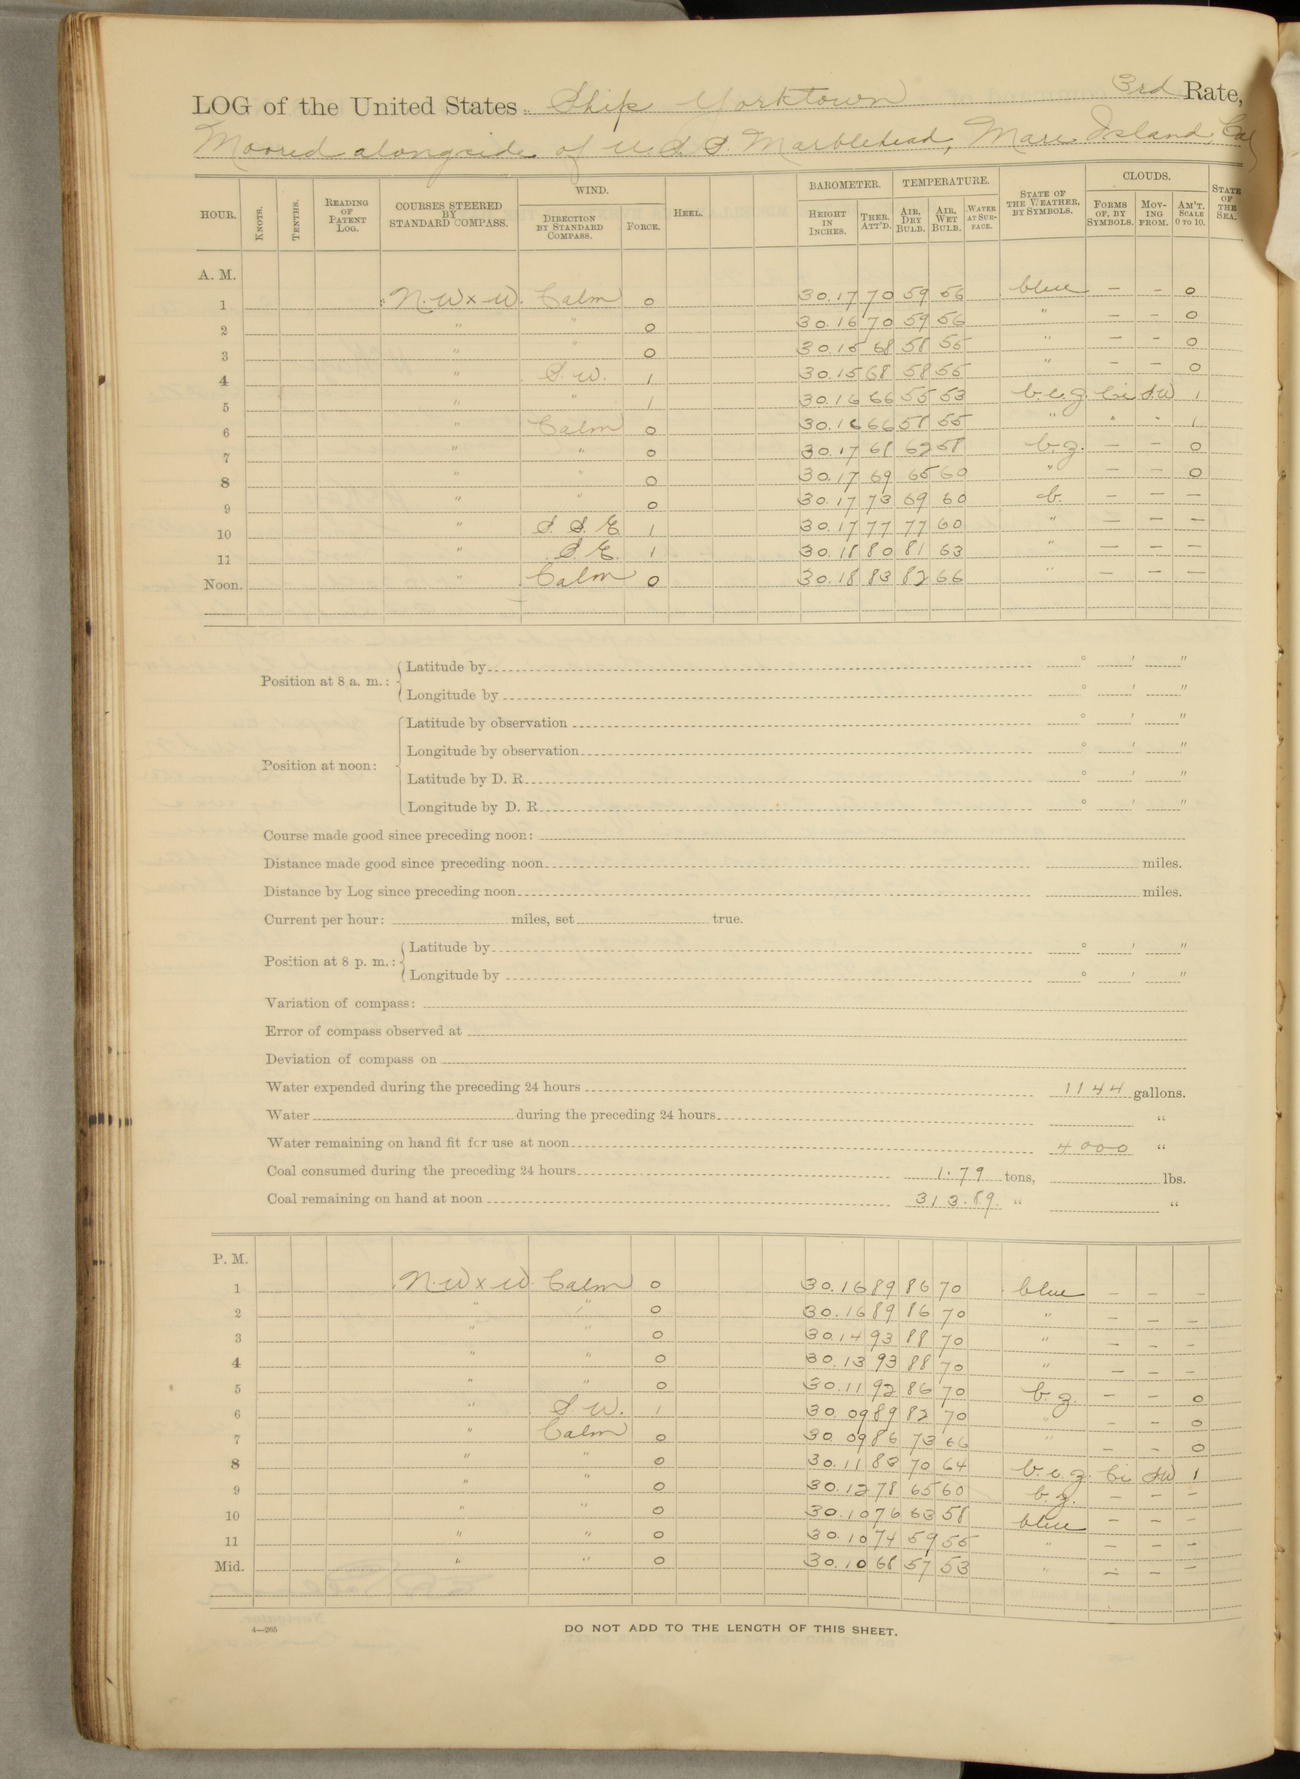 LOG of the United States Ship Yorktown 3rd Rate,
Moored alongside of U.S.S. Marblehead, Mare Island, Cal
HOUR. KNOTS. TENTHS. READING OF PATENT LOG. COURSES STEERED BY STANDARD COMPASS. WIND. DIRECTION BY STANDARD COMPASS. FORCE. HEEL. BAROMETER. HEIGHT IN INCHES. THER. ATT'D. TEMPERATURE. AIR, DRY BULB. AIR, WET BULB. WATER AT SURFACE. STATE OF THE WEATHER, BY SYMBOLS. CLOUDS. FORMS OF, BY SYMBOLS. MOVING FROM. AM'T. SCALE 0 TO 10. STATE OF THE SEA.
A. M.
1 N.W x W. Calm 0 30.17 70 59 56 blue — - 0
2 " " 0 30.16 70 59 56 " — — 0
3 " " 0 30.15 68 58 55 " — — 0
4 " S.W. 1 30.15 68 58 55 " — — 0
5 " " 1 30.16 66 55 53 b.c.z. Ci S.W 1
6 " Calm 0 30.16 66 58 55 " " " 1
7 " " 0 30.17 68 62 58 b.z. — — 0
8 " " 0 30.17 69 65 60 " — — 0
9 " " 0 30.17 73 69 60 b. — — —
10 " S.S.E. 1 30.17 77 77 60 " — — —
11 " S.E. 1 30.18 80 81 63 " — — —
Noon. " Calm 0 30.18 83 82 66 " — — —
Position at 8 a. m.: Latitude by ° ' "
Longitude by ° ' "
Position at noon: Latitude by observation ° ' "
Longitude by observation ° ' "
Latitude by D. R. ° ' "
Longitude by D. R. ° ' "
Course made good since preceding noon:
Distance made good since preceding noon miles.
Distance by Log since preceding noon miles.
Current per hour: miles, set true.
Position at 8 p. m.: Latitude by ° ' "
Longitude by ° ' "
Variation of compass:
Error of compass observed at
Deviation of compass on
Water expended during the preceding 24 hours 1144 gallons.
Water during the preceding 24 hours "
Water remaining on hand fit for use at noon 4000 "
Coal consumed during the preceding 24 hours 1.79 tons, lbs.
Coal remaining on hand at noon 313.89 " "
P. M.
1 N.W x W. Calm 0 30.16 89 86 70 blue — - -
2 " " 0 30.16 89 86 70 " — — —
3 " " 0 30.14 93 88 70 " — - -
4 " " 0 30.13 93 88 70 " — — —
5 " " 0 30.11 92 86 70 b.z. — — 0
6 " S.W. 1 30 09 89 82 70 " - - 0
7 " Calm 0 30 09 86 73 66 " — - 0
8 " " 0 30.11 83 70 64 b.c.z. Ci S.W 1
9 " " 0 30.12 78 65 60 b.z. — — —
10 " " 0 30.10 76 63 58 blue — - -
11 " " 0 30.10 74 59 55 " — - -
Mid. " " 0 30.10 68 57 53 " — — —
4—265
DO NOT ADD TO THE LENGTH OF THIS SHEET.